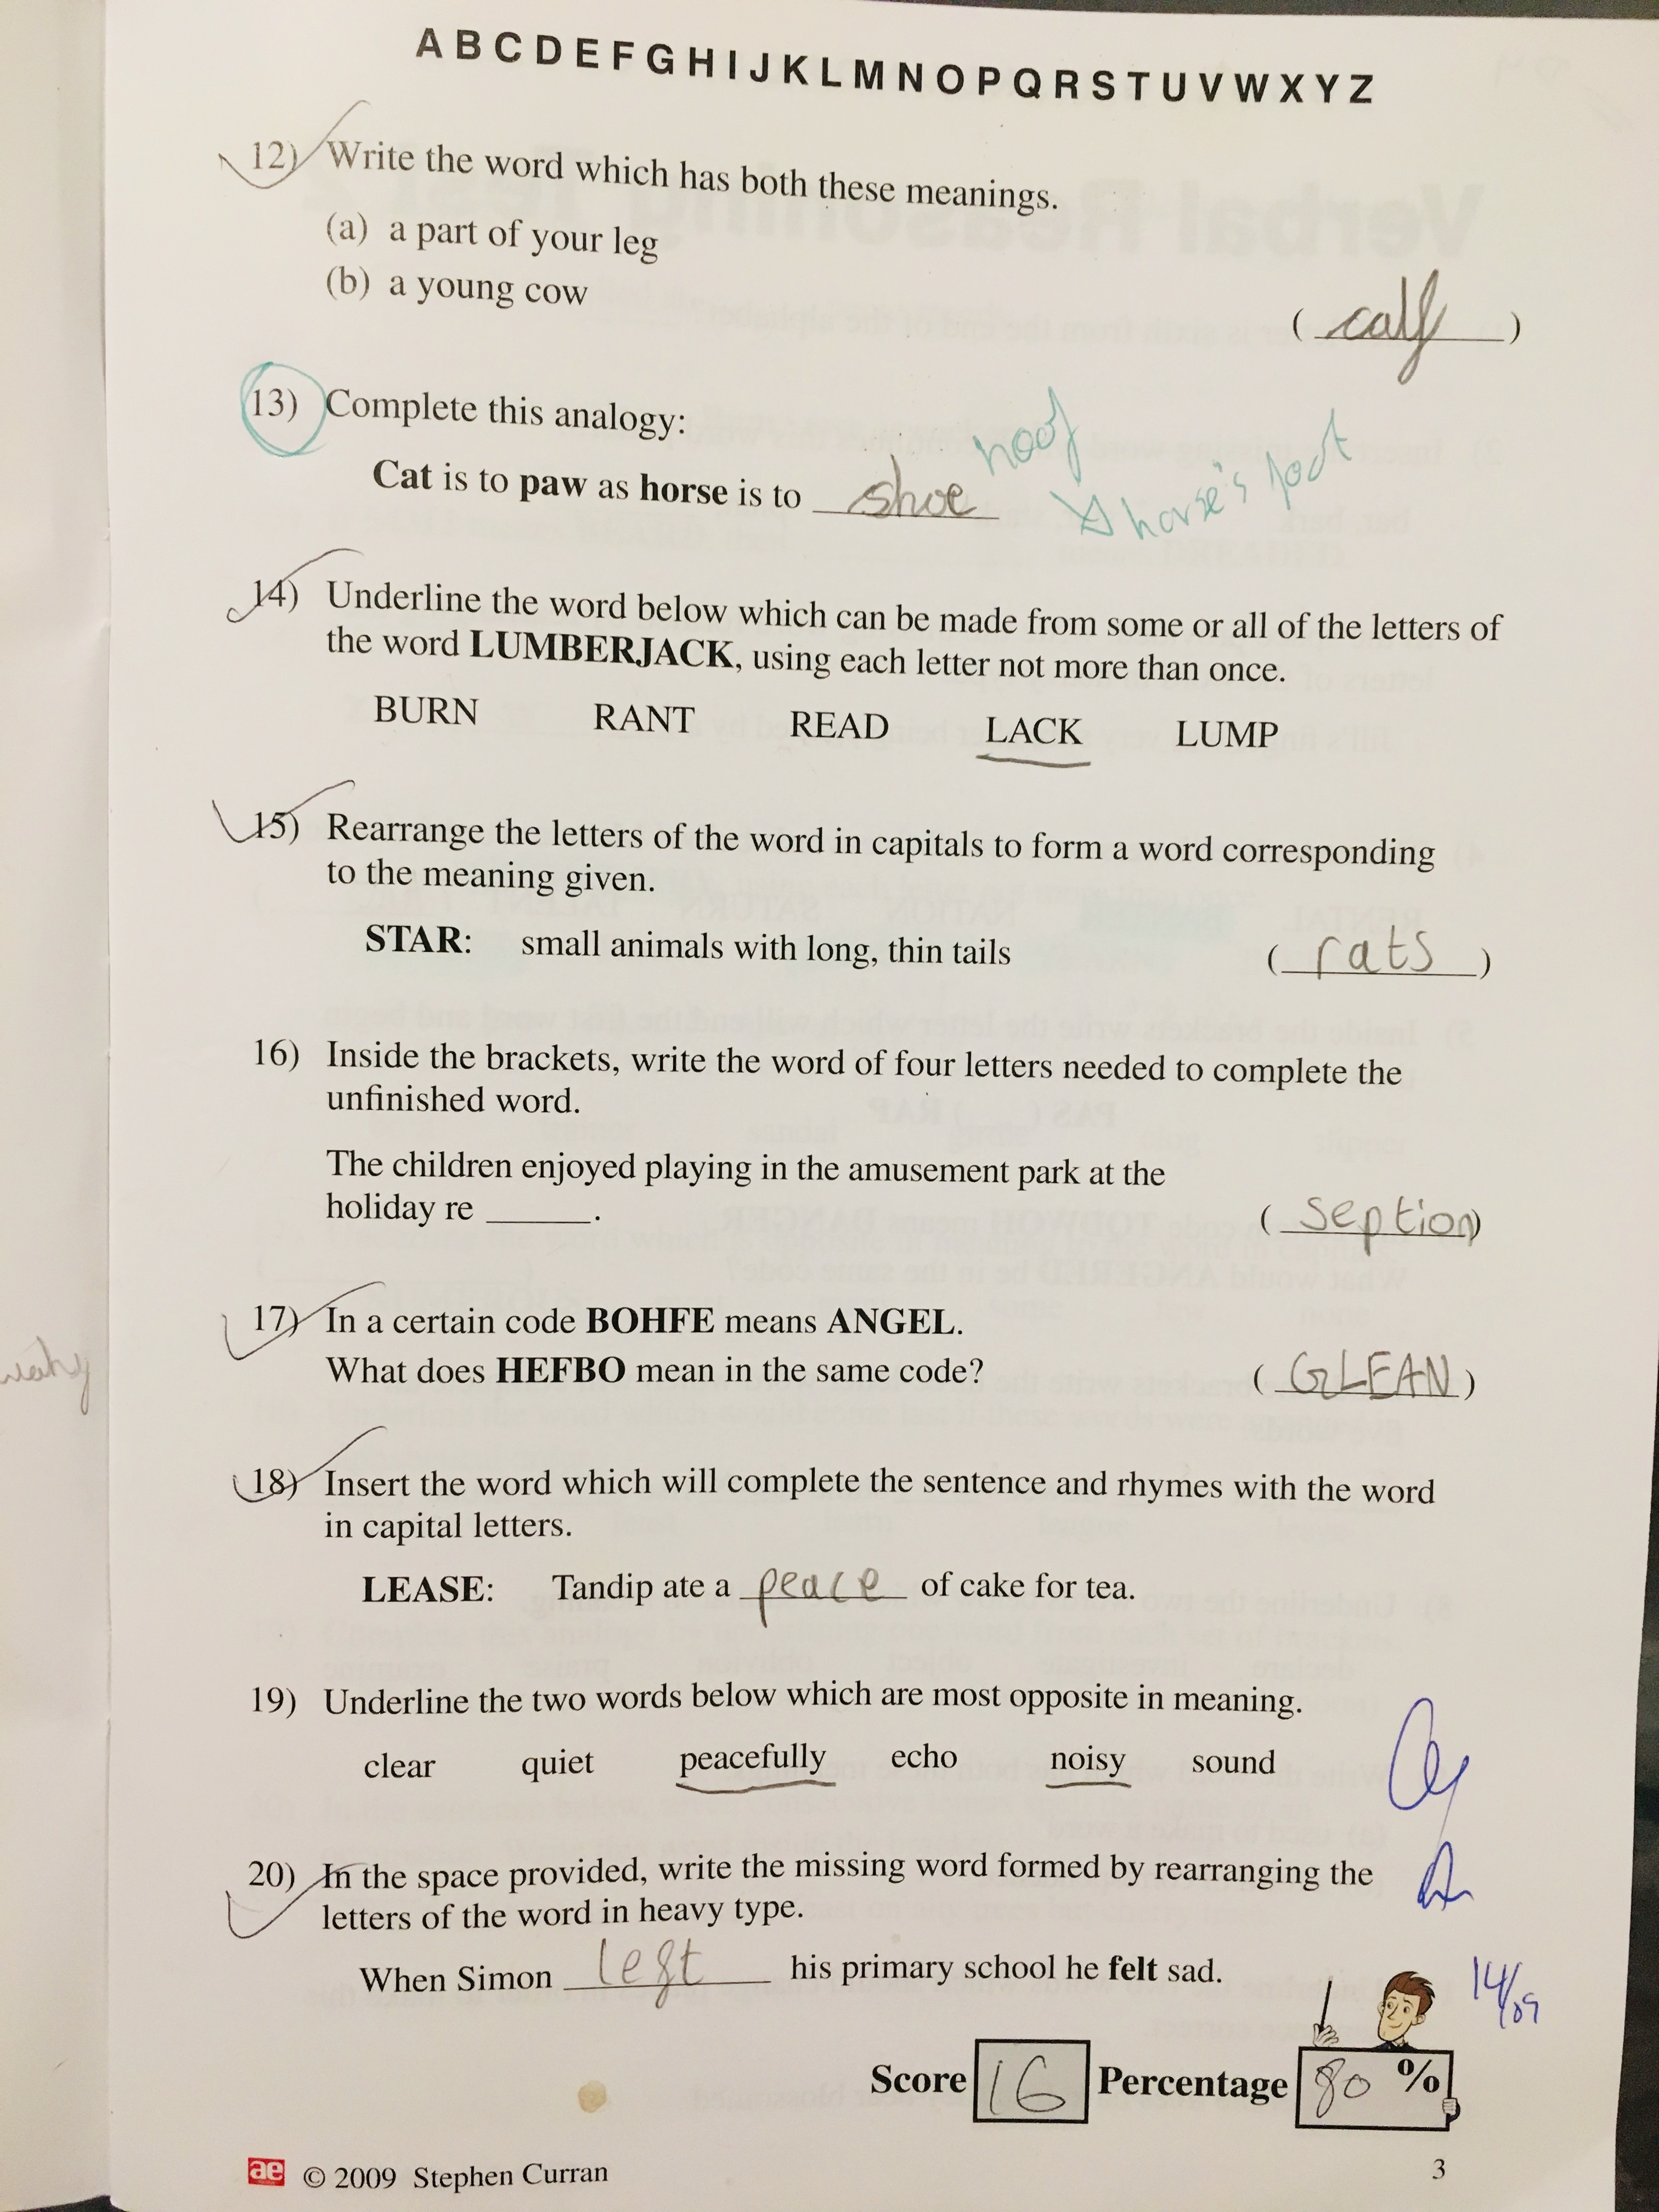 A B C D E F G H I J K L M N O P Q R S T U V W X Y Z
12) Write the word which has both these meanings.
(a) a part of your leg
(b) a young cow
( calf )
13) Complete this analogy:
hoof
Cat is to paw as horse is to shoe
horse's foot
14) Underline the word below which can be made from some or all of the letters of
the word LUMBERJACK, using each letter not more than once.
BURN RANT READ LACK LUMP
15) Rearrange the letters of the word in capitals to form a word corresponding
to the meaning given.
STAR: small animals with long, thin tails ( rats )
16) Inside the brackets, write the word of four letters needed to complete the
unfinished word.
The children enjoyed playing in the amusement park at the
holiday re ______. ( seption )
17) In a certain code BOHFE means ANGEL.
What does HEFBO mean in the same code? ( GLEAN )
18) Insert the word which will complete the sentence and rhymes with the word
in capital letters.
LEASE: Tandip ate a peace of cake for tea.
19) Underline the two words below which are most opposite in meaning.
clear quiet peacefully echo noisy sound
20) In the space provided, write the missing word formed by rearranging the
letters of the word in heavy type.
When Simon left his primary school he felt sad.
14/09
Score 16 Percentage 80 %
ae © 2009 Stephen Curran
3